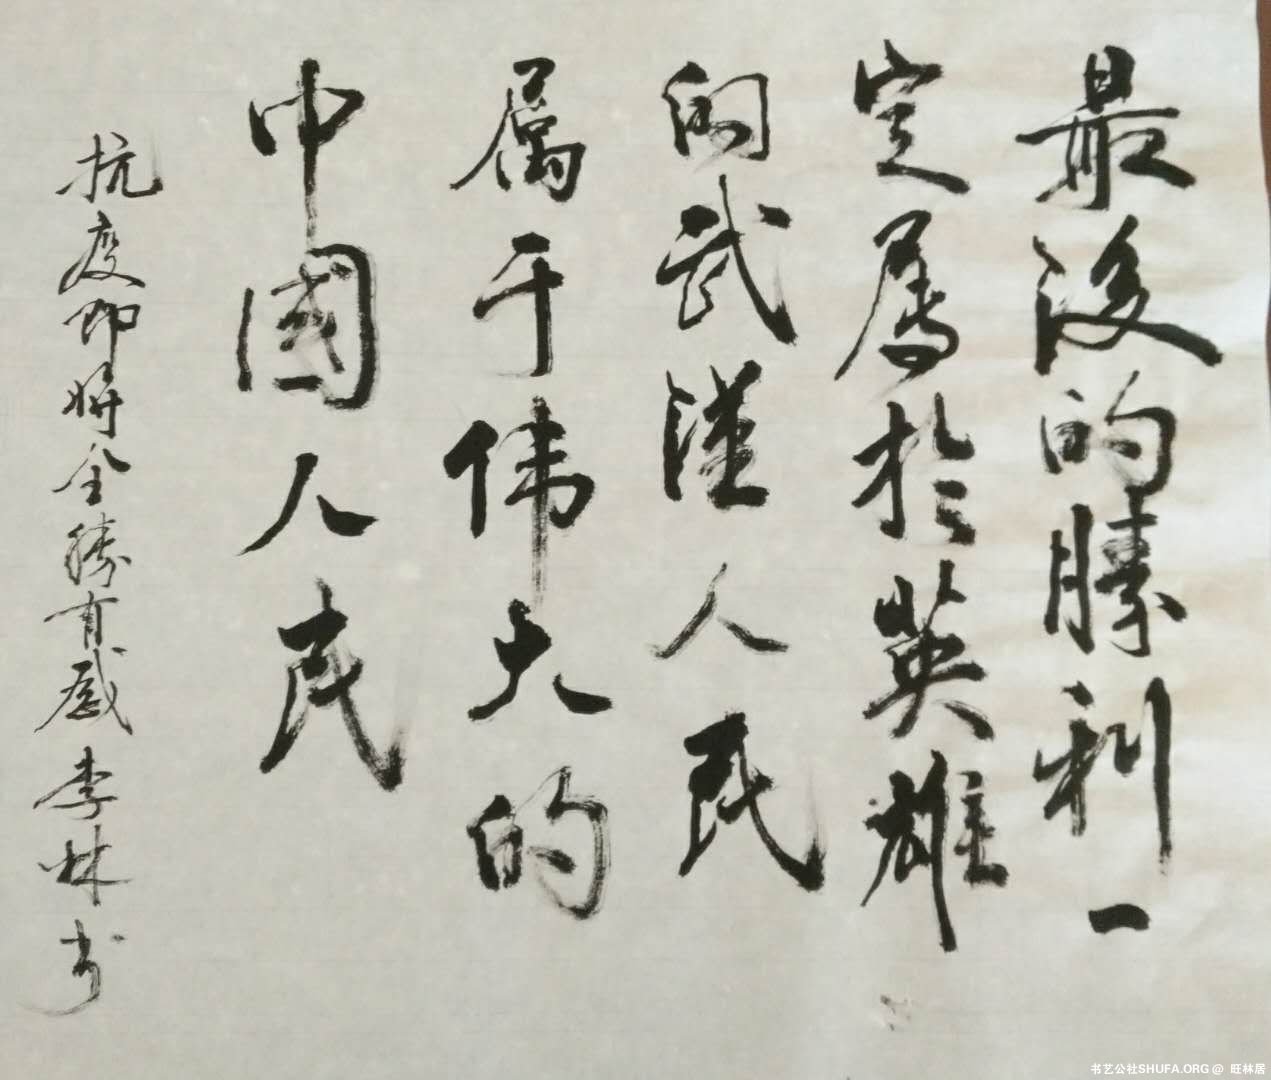 最後的勝利一
定屬於英雄
的武漢人民
属于伟大的
中國人民
抗疫即将全勝有感 李林书
书艺公社SHUFA.ORG @ 旺林居